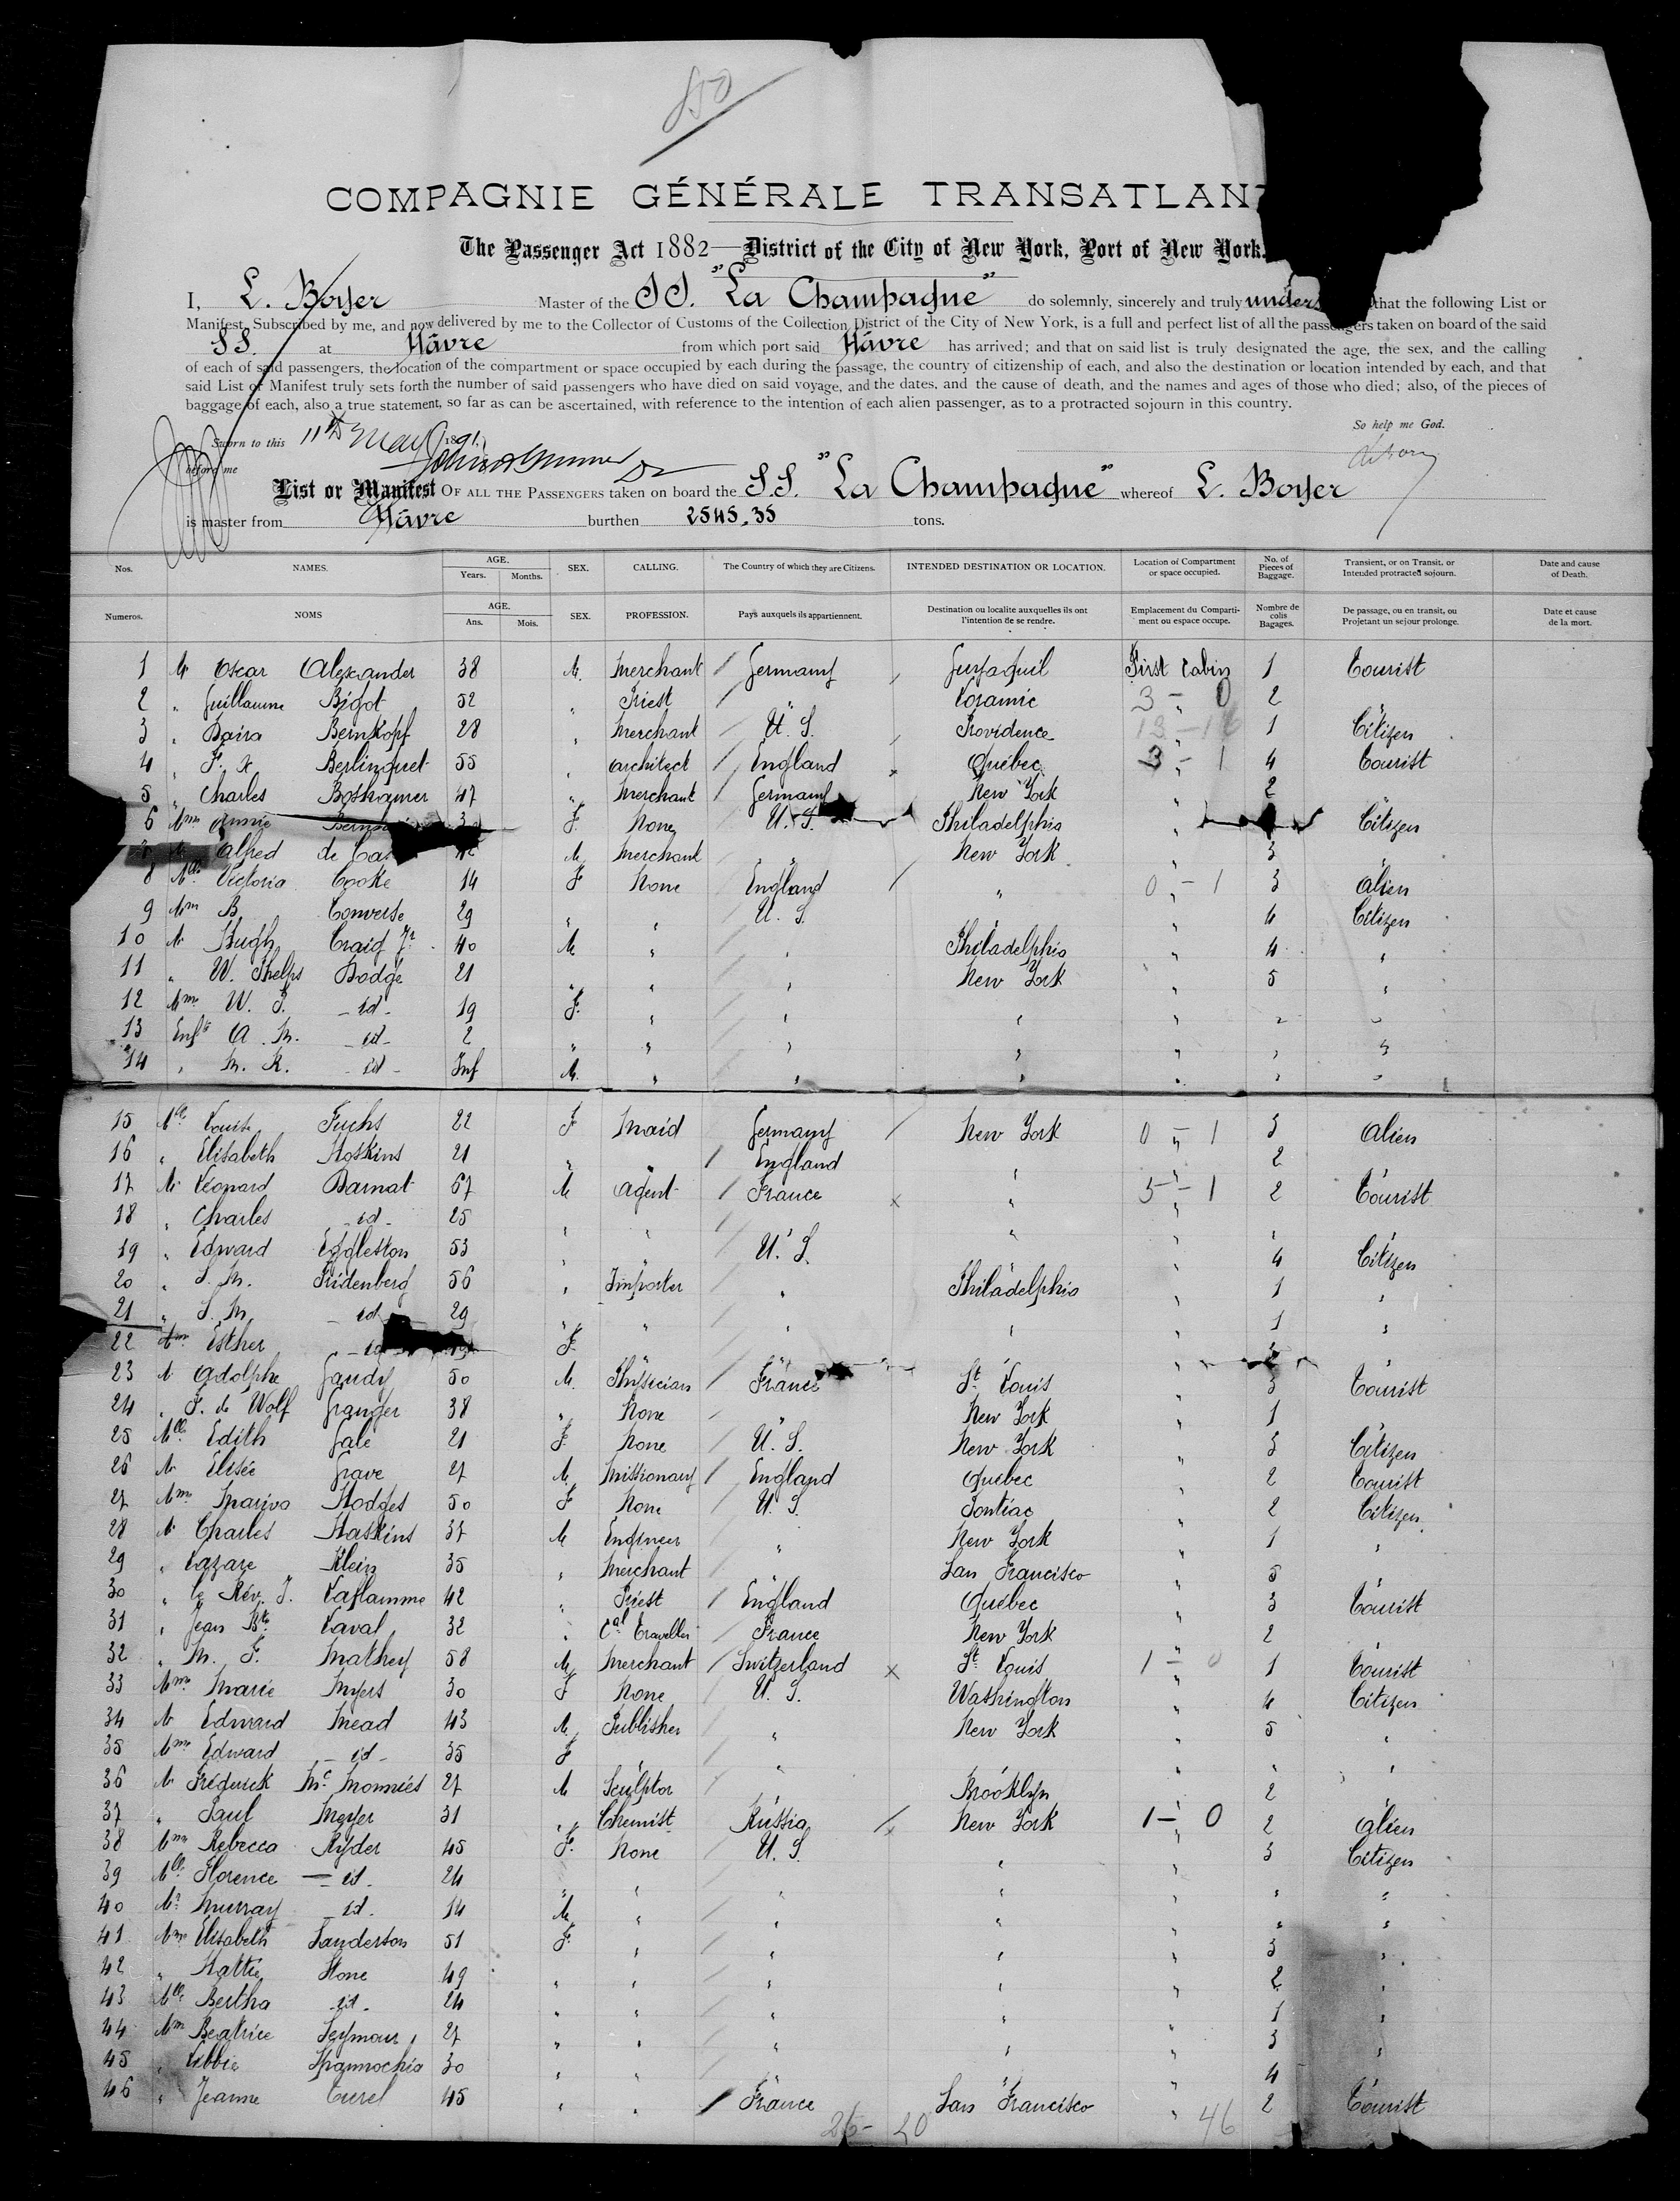 850
COMPAGNIE GÉNÉRALE TRANSATLAN
The Passenger Act 1882—District of the City of New York, Port of New York.
I, L. Boyer Master of the SS. "La Champagne" do solemnly, sincerely and truly that the following List or
Manifest, Subscribed by me, and now delivered by me to the Collector of Customs of the Collection District of the City of New York, is a full and perfect list of all the passengers taken on board of the said
SS. at Hâvre from which port said Hâvre has arrived; and that on said list is truly designated the age, the sex, and the calling
of each of said passengers, the location of the compartment or space occupied by each during the passage, the country of citizenship of each, and also the destination or location intended by each, and that
said List or Manifest truly sets forth the number of said passengers who have died on said voyage, and the dates, and the cause of death, and the names and ages of those who died; also, of the pieces of
baggage of each, also a true statement, so far as can be ascertained, with reference to the intention of each alien passenger, as to a protracted sojourn in this country.
So help me God.
Sworn to this 11th May 1891
before me
List or Manifest OF ALL THE PASSENGERS taken on board the SS. "La Champagne" whereof L. Boyer
is master from Hâvre burthen 2545.35 tons.
Nos. NAMES. AGE. Years. Months. SEX. CALLING. The Country of which they are Citizens. INTENDED DESTINATION OR LOCATION. Location of Compartment or space occupied. No. of Pieces of Baggage. Transient, or on Transit, or Intended protracted sojourn. Date and cause of Death.
Numeros. NOMS AGE. Ans. Mois. SEX. PROFESSION. Pays auxquels ils appartiennent. Destination ou localite auxquelles ils ont l'intention de se rendre. Emplacement du Compartiment ou espace occupe. Nombre de colis Bagages. De passage, ou en transit, ou Projetant un sejour prolonge. Date et cause de la mort.
1 Mr Oscar Alexander 38 M. Merchant / Germany Guyaquil First Cabin 1 Tourist
2 " Guillaume Bigot 52 " Priest / " " 2 "
3 " Bernkopf 28 " Merchant / U. S. Providence " 1 Citizen
4 " F. X Berlinquet 55 " Architect / England Québec 3 - 1 " 4 Tourist
5 " Charles Boshamer 47 " Merchant / Germany New York " 2 "
6 Mme Annie F. None U. S. Philadelphia " Citizen
Alfred de M Merchant " " New York " 3 "
8 Mlle Victoria Cooke 14 F None England / " 0 - 1 3 Alien
9 Mme B. Converse 29 " " U. S. " 4 Citizen
10 Mr Hugh Craig Jr 40 M " " Philadelphia " 4 "
11 " W. Phelps Dodge 21 " " " New York " 5 "
12 Mme W. P. - id - 19 F. " " " " " "
13 Enfts A. M. - id - 2 " " " " " " "
14 " M. R. - id - Inf M. " " " " " "
15 Mlle Louise Fuchs 22 F Maid Germany / New York 0 - 1 3 Alien
16 " Elisabeth Hoskins 21 " " / England " " 2 "
17 Mr Léonard Barnat 67 M Agent / France x " 5 - 1 2 Tourist
18 " Charles - id - 25 " " / " " " " "
19 " Edward Eggleston 53 " " / U. S. " " 4 Citizen
20 " S. M. Fridenberg 56 " Importer " Philadelphia " 1 "
21 " S. M. - id - 29 " " " " " 1 "
22 Mme Esther - id - F. " "
23 Mr Adolphe Gaudy 50 M. Physician / France St. Louis " 3 Tourist
24 " F. de Wolf Granger 38 " None / " New York " 1 "
25 Mlle Edith Gale 21 F. None / U. S. New York " 3 Citizen
26 Mr Elisée Grave 27 M Missionary / England Québec " 2 Tourist
27 Mme Hodges 50 F None / U. S. Pontiac " 2 Citizen
28 Mr Charles Haskins 37 M Engineer " New York " 1 "
29 " Lazare Klein 35 " Merchant " San Francisco " 5 "
30 " Le Rév. J. Laflamme 42 " Priest / England Québec " 3 Tourist
31 " Jean Bte Laval 32 " Cal Traveller / France New York " 2 "
32 " M. F. Mathey 58 M Merchant / Switzerland x St. Louis 1 - 0 1 Tourist
33 Mme Marie Myers 30 F None / U. S. Washington " 4 Citizen
34 Mr Edward Mead 43 M Publisher / " New York " 5 "
35 Mme Edward - id - 35 F " / " " " " "
36 Mr Fréderick Mc Monniés 27 M Sculptor / " Brooklyn " 2 "
37 " Paul Meyer 31 " Chemist / Russia x New York 1 - 0 2 Alien
38 Mme Rebecca Ryder 45 F. None / U. S. " " 3 Citizen
39 Mlle Florence - id - 24 " " / " " " " "
40 Mr Murray - id - 14 M " / " " " " "
41 Mme Elisabeth Sanderson 51 F. " / " " " 3 "
42 " Hattie Stone 49 " " / " " " 2 "
43 Mlle Bertha - id - 24 " " / " " " 1 "
44 Mme Beatrice Seymour 27 " " / " " " 3 "
45 " Libbie Spannochia 30 " " / " " " 4 "
46 " Jeanne Turel 45 " " / France San Francisco " 2 Tourist
26 - 20 46